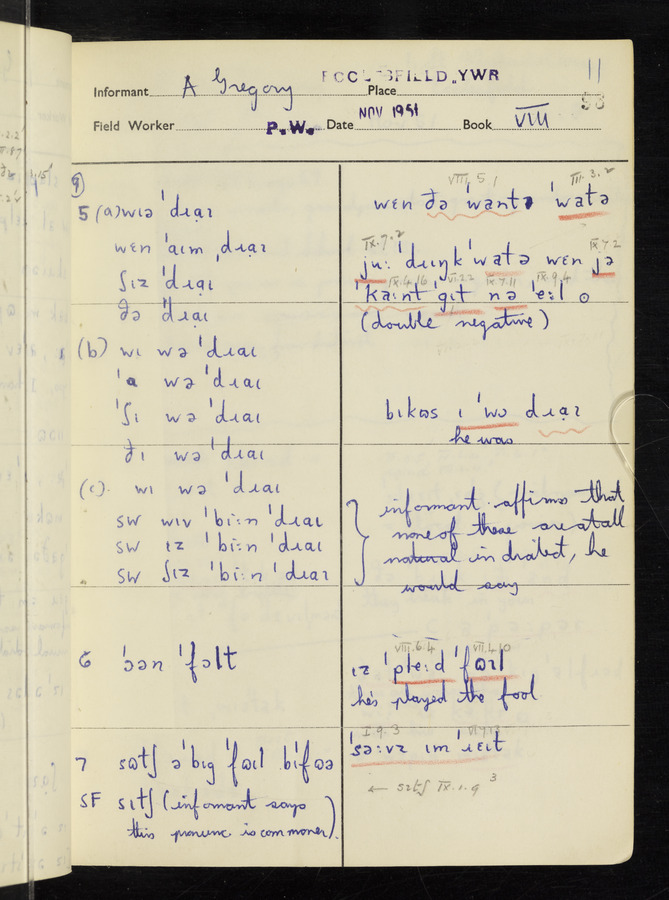 ECCLESFIELD, YWR 11
Informant A Gregory Place
98
Field Worker P.W. Date NOV 1951 Book VIII
9
5 (a) wɪə ˈdɹaɪ
wɛn ˈaɪm ˌdɹaɪ
ʃɪz ˈdɹaɪ
ðə ˈdɹaɪ
(b) wɪ wə ˈdɹaɪ
ˈa wə ˈdɹaɪ
ˈʃɪ wə ˈdɹaɪ
ðɪ wə ˈdɹaɪ
(c). wɪ wə ˈdɹaɪ
SW wɪv ˈbiːn ˈdɹaɪ
SW ɪz ˈbiːn ˈdɹaɪ
SW ʃɪz ˈbiːn ˈdɹaɪ
6 ˈɔən ˈfəlt
7 sɷtʃ ə ˈbɪg ˈfɷɪl bɪˈfɷə
SF sɪtʃ (informant says
this pronunc is commoner).
VIII. 5. 1 III. 3. 2
wɛn ðə ˈwantɪ ˈwatə
IX. 7. 2 IX. 7 2
juː ˈdɹɪŋk ˈwatə wɛn jə
IX. 4. 16 VI. 2 2 IX. 7. 11 IX. 9. 4
ˈkaɪnt ˈgɪt nə ˈeːl o
(double negative)
bɪkɷs ɪ ˈwɷ dɹaɪ
he was
informant affirms that
none of these are at all
natural in dialect, he
would say
VIII. 6. 4 VII. 4. 10
ɪz ˈpleːd ˈfɷɪl
he's played the fool
I. 9. 3
ˈsəːvz ɪm ˈɹɛɪt
← sɪtʃ IX. 1. 9 3